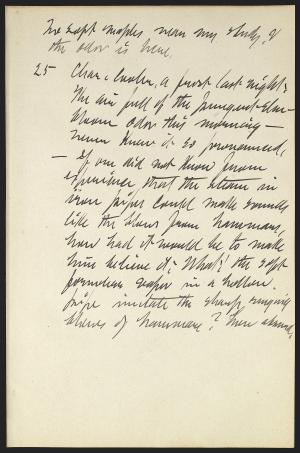 two soft maples near my study, &
the odor is here.
25 Clear, cooler, a frost last night;
the air full of the pungent Elm-
bloom odor this morning —
never knew it so pronounced.
— If one did not know from
experience that the steam in
iron pipes could make sounds
like the blows from hammers,
how hard it would be to make
him believe it; What! the soft
formless vapor in a hollow
pipe imitate the sharp ringing
blows of hammers? How absurd,